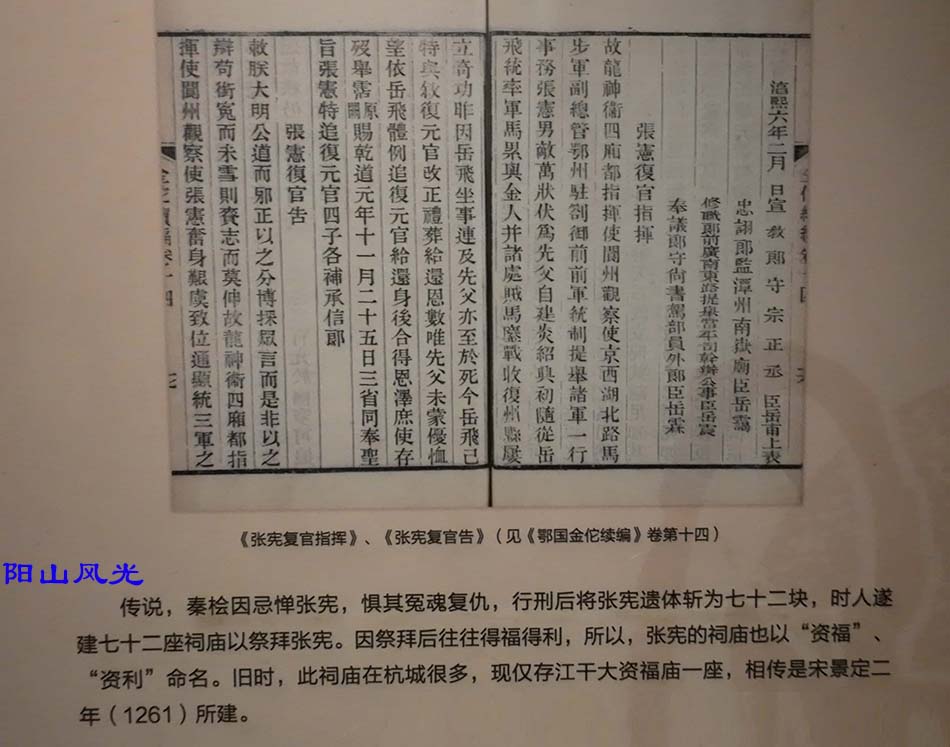 淳熙六年二月 日宣教郎守宗正丞 臣岳甫上表
忠翊郎監潭州南嶽廟臣岳靄
修職郎前廣南東路提舉常平司幹辦公事臣岳震
奉議郎守尚書駕部員外郎臣岳霖
張憲復官指揮
故龍神衛四厢都指揮使閬州觀察使京西湖北路馬
步軍副總管鄂州駐劄御前前軍統制提舉諸軍一行
事務張憲男敵萬狀伏爲先父自建炎紹興初隨從岳
飛統率軍馬累與金人并諸處賊馬鏖戰收復州縣屢
立奇功昨因岳飛坐事連及先父亦至於死今岳飛已
特與敘復元官改正禮葬給還恩數唯先父未蒙優恤
望依岳飛體例追復元官給還身後合得恩澤庶使存
歿舉霑原闕賜乾道元年十一月二十五日三省同奉聖
旨張憲特追復元官四子各補承信郎
張憲復官告
敕朕大明公道而邪正以之分博採眾言而是非以之
辯苟銜冤而未雪則賫志而莫伸故龍神衛四厢都指
揮使閬州觀察使張憲奮身艱虞致位通顯統三軍之
《张宪复官指挥》、《张宪复官告》（见《鄂国金佗续编》卷第十四）
阳山风光
传说，秦桧因忌惮张宪，惧其冤魂复仇，行刑后将张宪遗体斩为七十二块，时人遂
建七十二座祠庙以祭拜张宪。因祭拜后往往得福得利，所以，张宪的祠庙也以“资福”、
“资利”命名。旧时，此祠庙在杭城很多，现仅存江干大资福庙一座，相传是宋景定二
年（1261）所建。